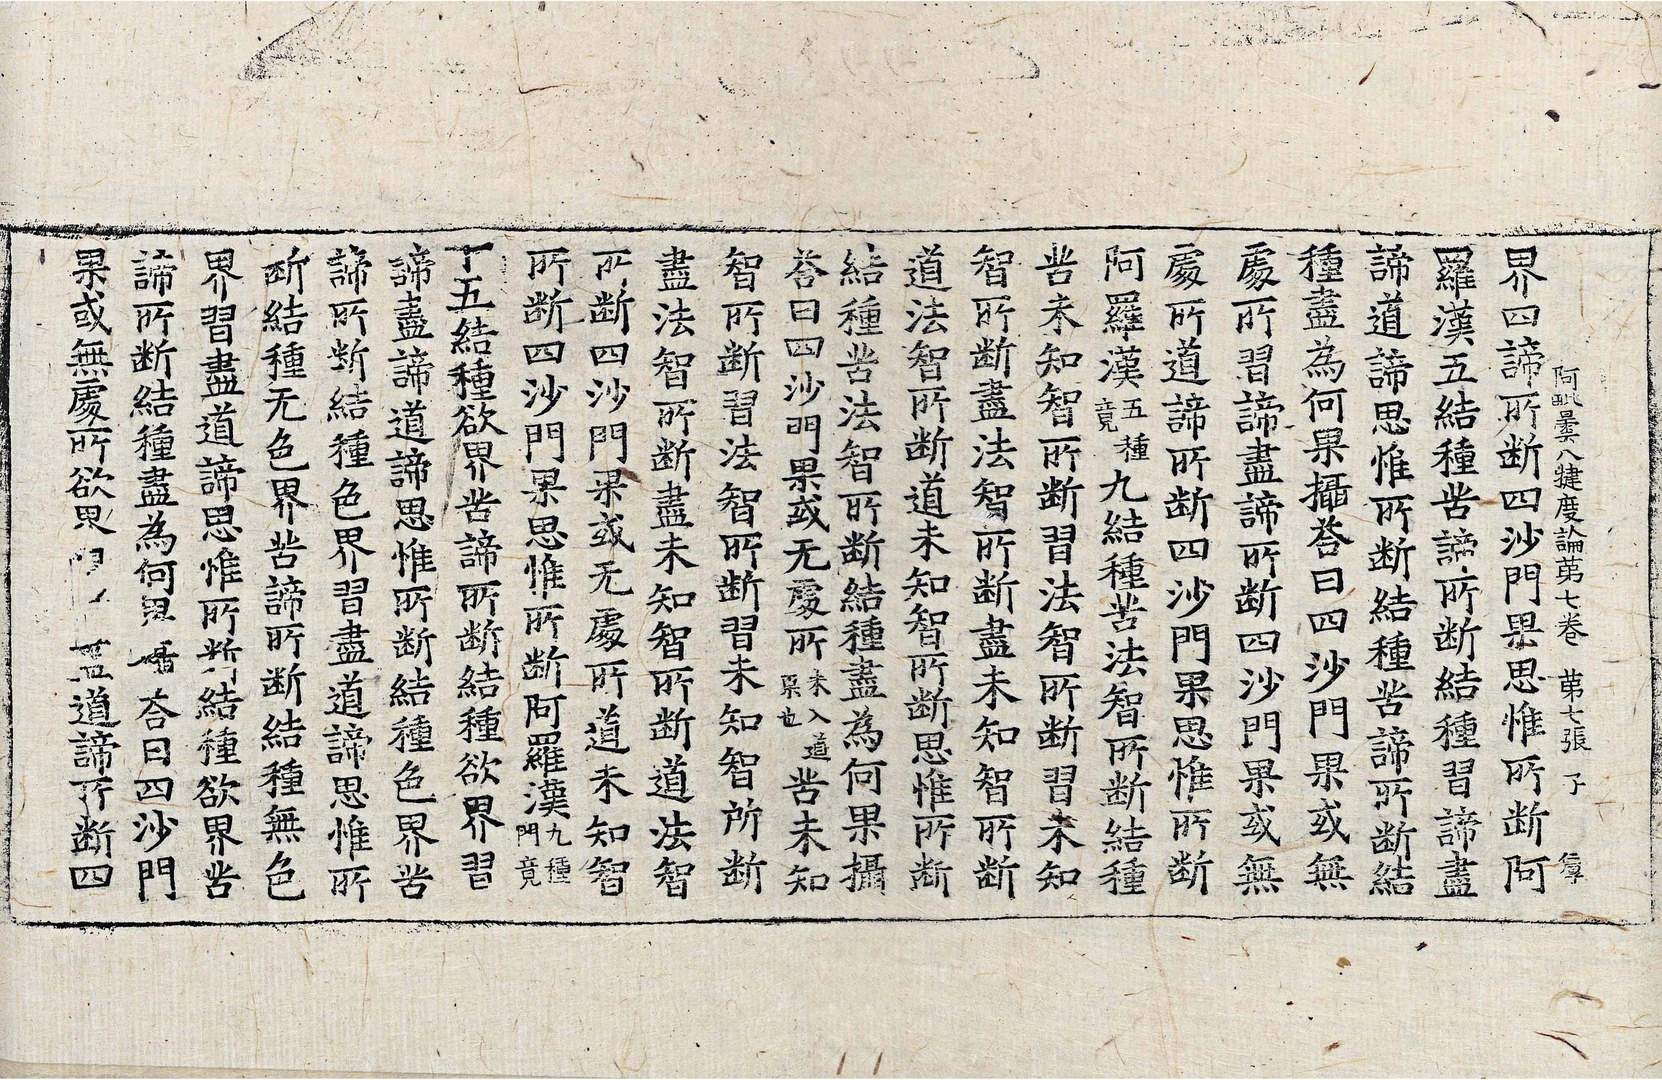 阿毗曇八犍度論第七卷 第七張 子
界四諦所斷四沙門果思惟所斷阿
羅漢五結種苦諦所斷結種習諦盡
諦道諦思惟所斷結種苦諦所斷結
種盡為何果攝荅曰四沙門果或無
處所習諦盡諦所斷四沙門果或無
處所道諦所斷四沙門果思惟所斷
阿羅漢五種竟九結種苦法智所斷結種
苦未知智所斷習法智所斷習未知
智所斷盡法智所斷盡未知智所斷
道法智所斷道未知智所斷思惟所斷
結種苦法智所斷結種盡為何果攝
荅曰四沙門果或无處所未入道果也苦未知
智所斷習法智所斷習未知智所斷
盡法智所斷盡未知智所斷道法智
所斷四沙門果或无處所道未知智
所斷四沙門果思惟所斷阿羅漢九種門竟
十五結種欲界苦諦所斷結種欲界習
諦盡諦道諦思惟所斷結種色界苦
諦所斷結種色界習盡道諦思惟所
斷結種无色界苦諦所斷結種無色
界習盡道諦思惟所斷結種欲界苦
諦所斷結種盡為何果攝荅曰四沙門
果或無處所欲界道諦所斷四